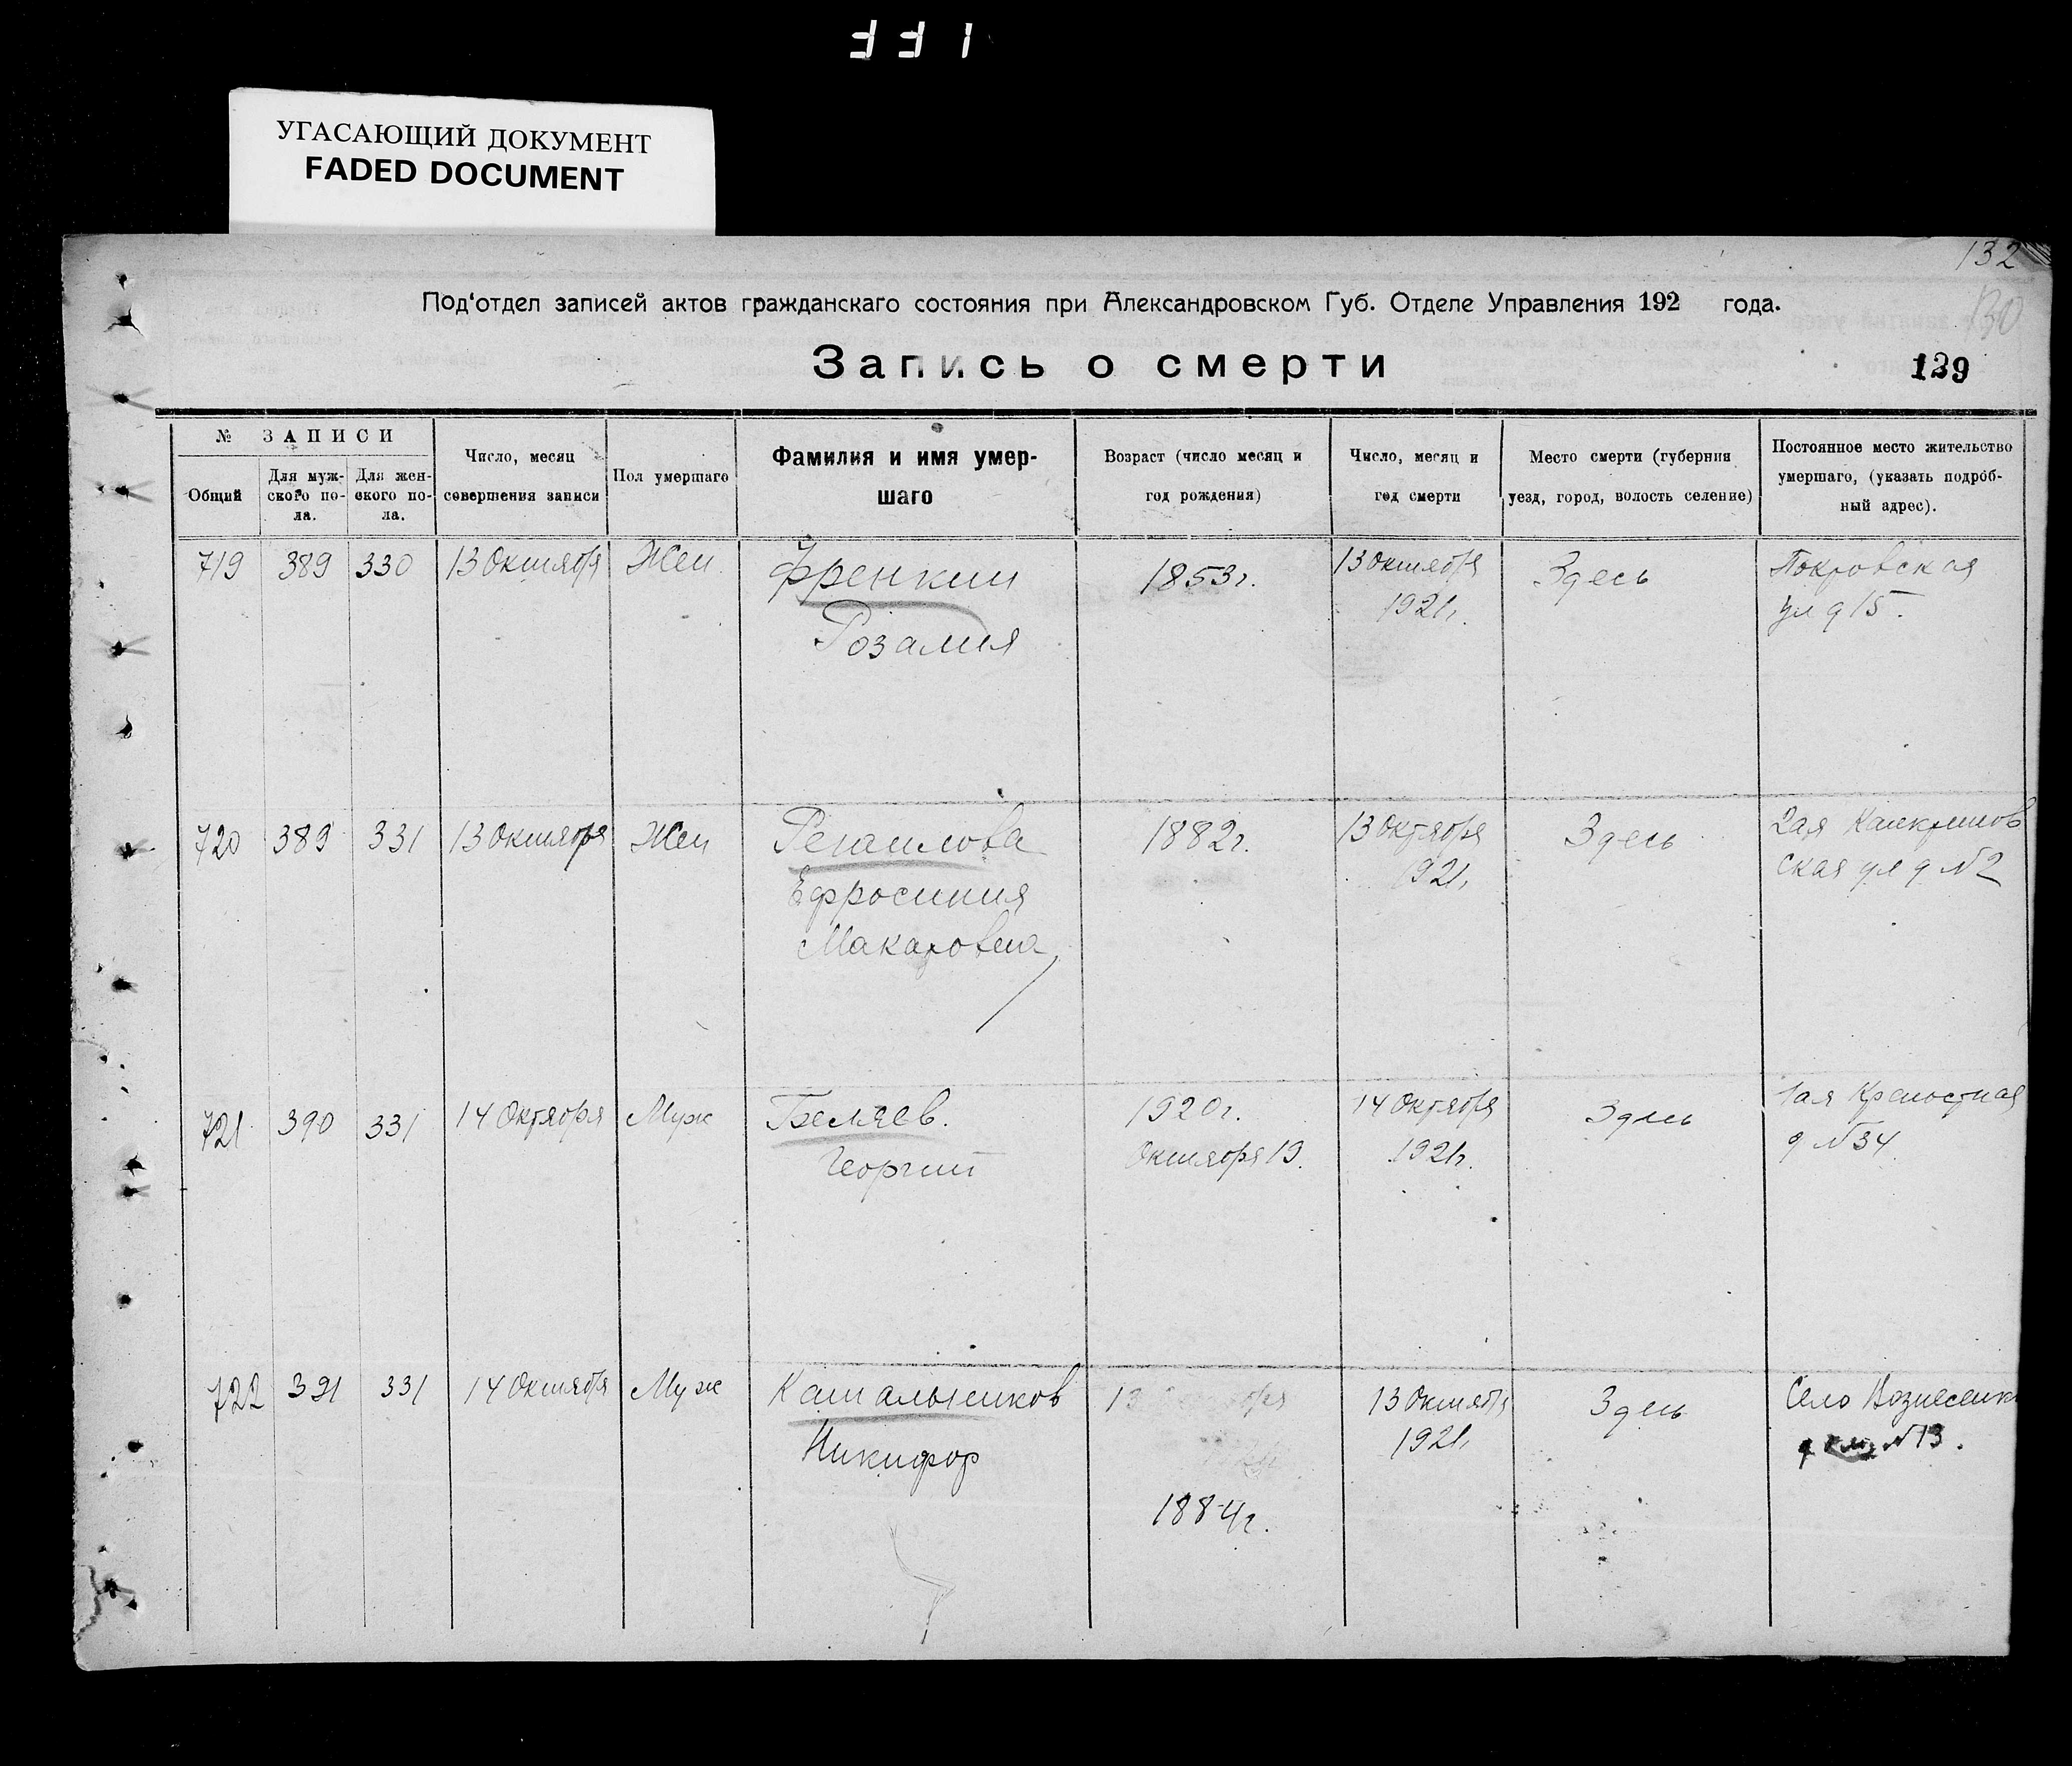 УГАСАЮЩИЙ ДОКУМЕНТ
FADED DOCUMENT
132
130
Под'отдел записей актов гражданскаго состояния при Александровском Губ. Отделе Управления 192 года.
Запись о смерти
129
№ ЗАПИСИ
Общий
Для муж-
ского по-
ла.
Для жен-
ского по-
ла.
Число, месяц
совершения записи
Пол умершаго
Фамилия и имя умер-
шаго
Возраст (число месяц и
год рождения)
Число, месяц и
год смерти
Место смерти (губерния
уезд, город, волость селение)
Постоянное место жительство
умершаго, (указать подроб-
ный адрес).
719 389 330 13 Октября Жен. Френкин 1853г. 13 октября Здесь Покровская
Розалия 1921г. ул д 15.
720 389 331 13 Октября Жен 1882г. 13 Октября Здесь 2ая
Ефросиния 1921г. ская ул д №2
Макаровна
721 390 331 14 Октября Муж Беляев. 1920г. 14 Октября Здесь 1ая Крепостная
Георгий Октября 19. 1921г. д №34
722 391 331 14 Октября Муж Катальников 13 13 Октября Здесь Село Вознесенк
Никифор 1921г. д №13.
1884г.